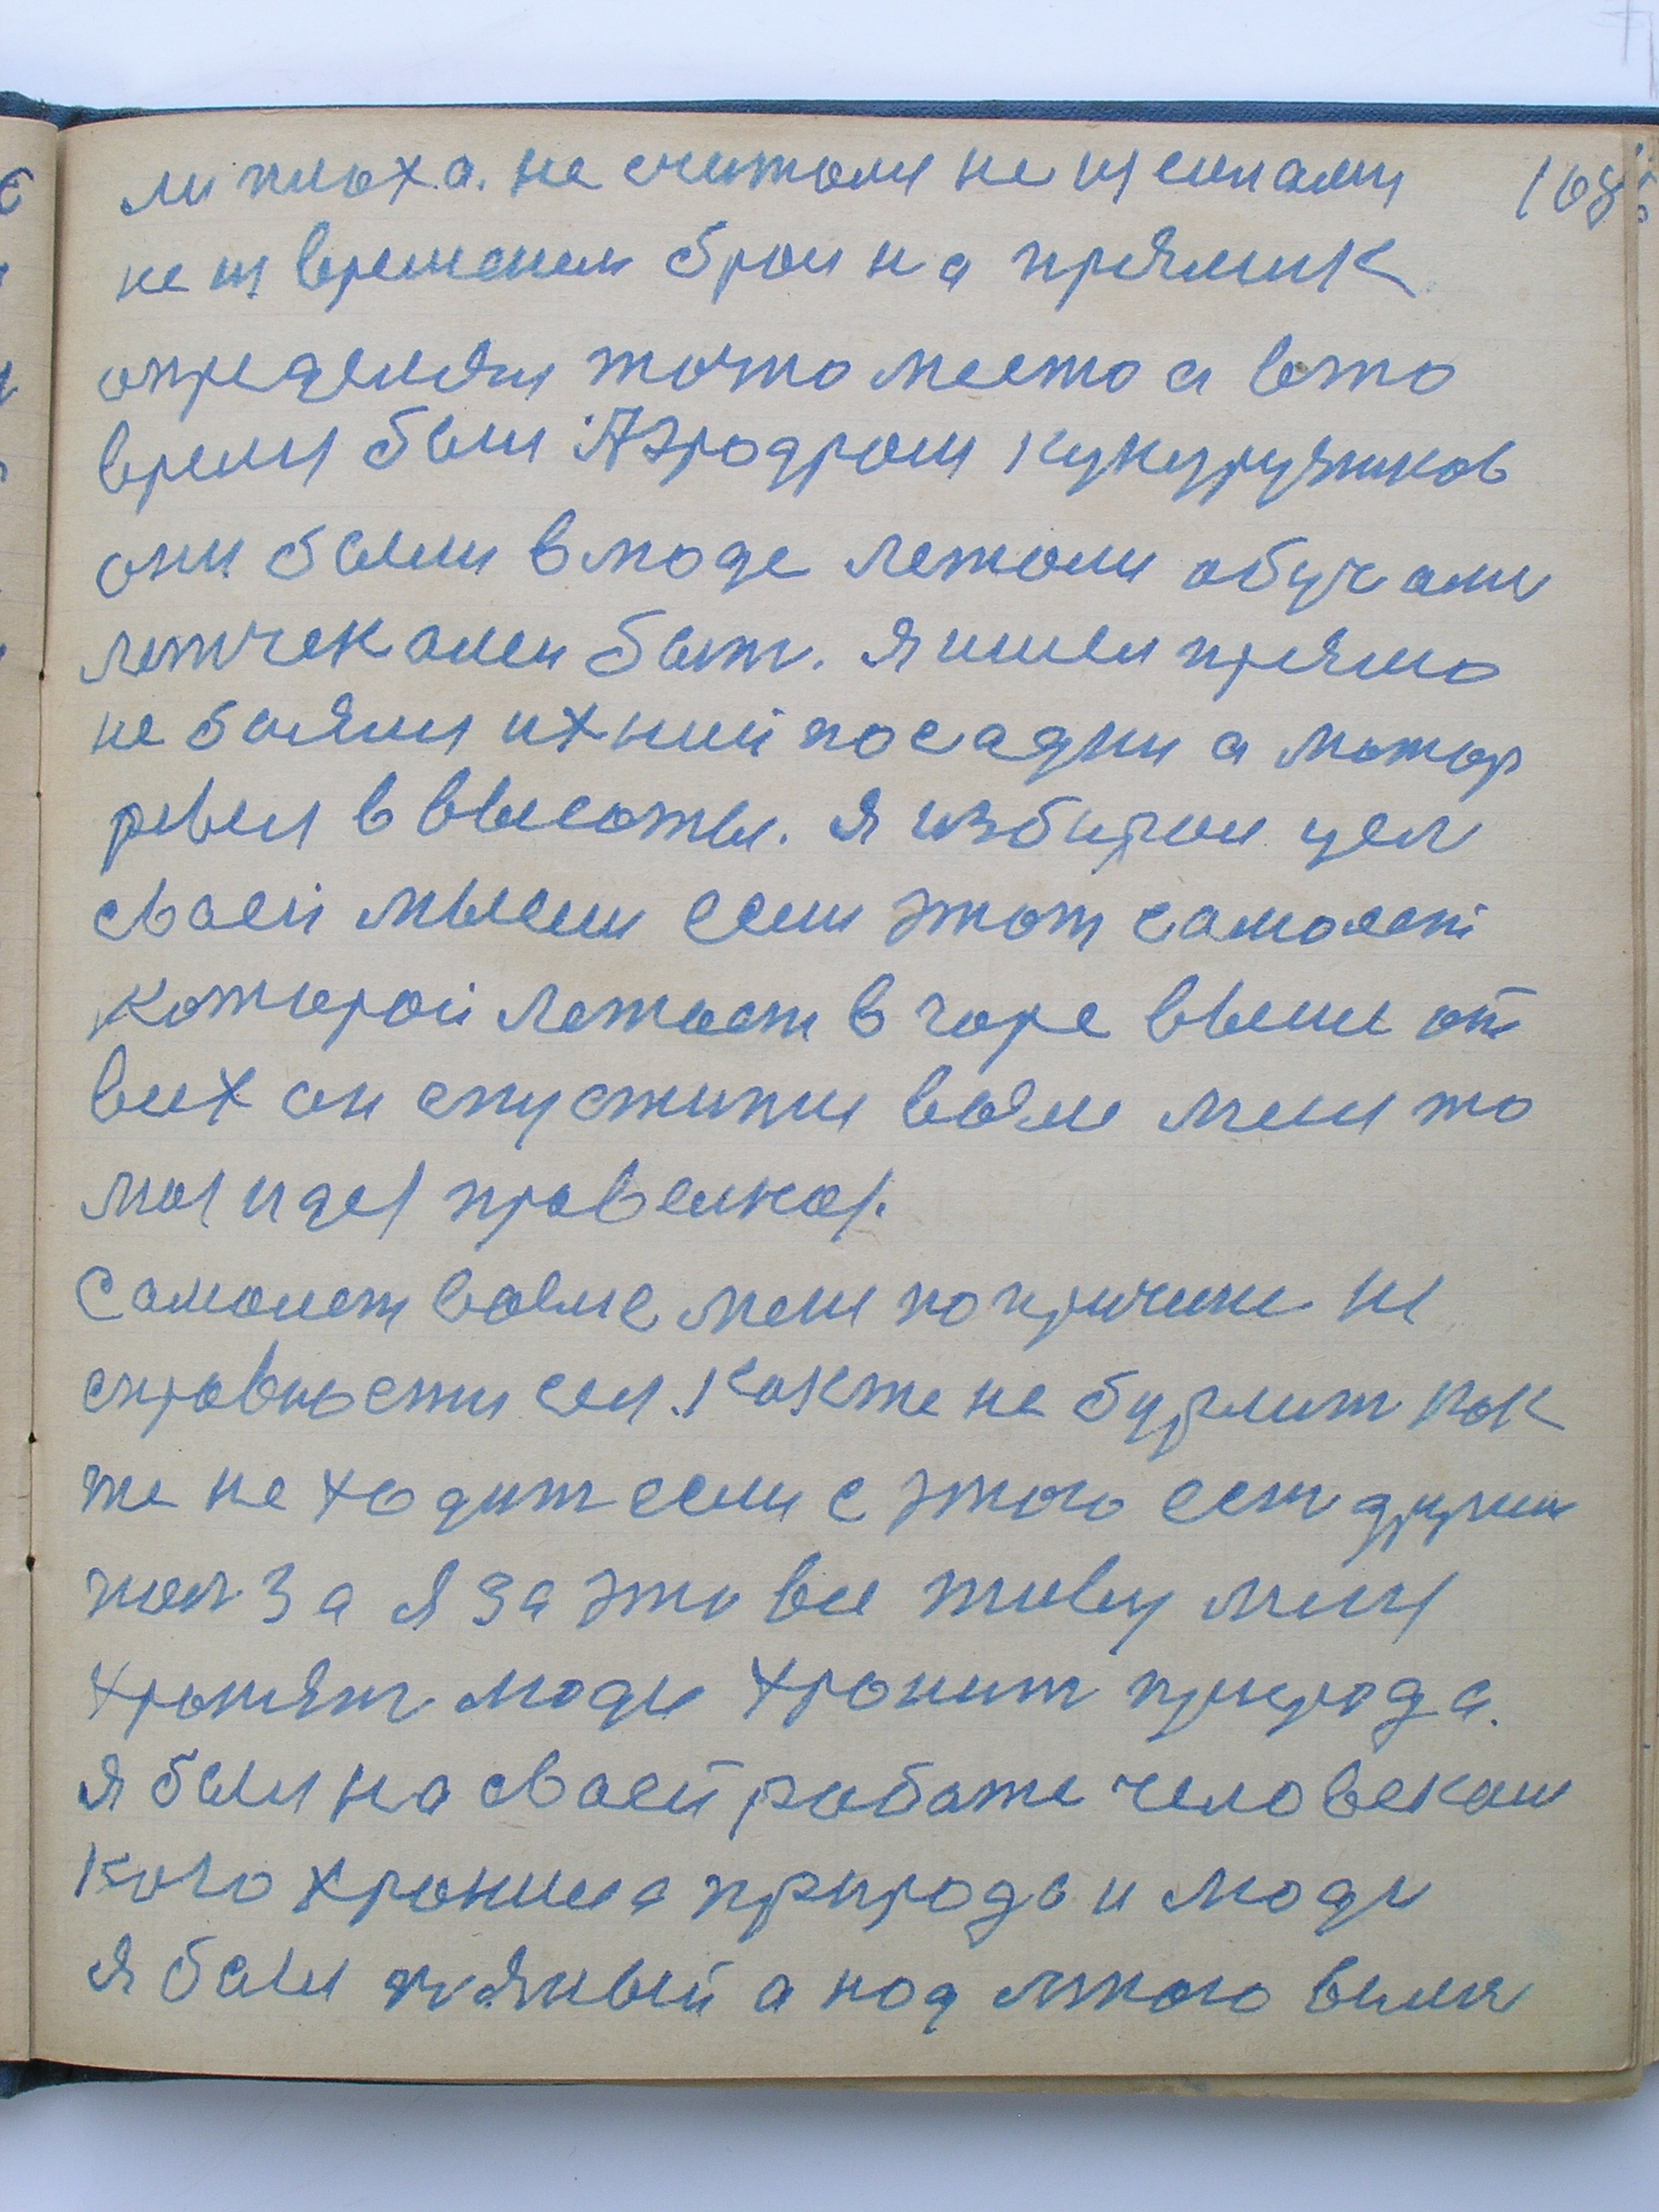 ли плоха. не считался не щ силами 168
не щ временем брал на прямик
определял точно место а вэто
время был Аэродром кукурузников
они были вмоде летали обучали
летчек олеи был. Я ишел прямо
не боялся ихний посадки а мотор
ревел в высоты. Я избирал цел
сваей мысли если этот самолет
которой летает в горе выше от
всех он спустится возле меня то
моя идея правельная.
Самолет возле меня попричине не
справности сел. Как же не бурлит как
же не ходит если с этого есть другим
полза я за это все живу меня
хронят люди хронит природа.
Я был на сваей работе человеком
кого хронила природа и люди
Я был пяный а под много выпил